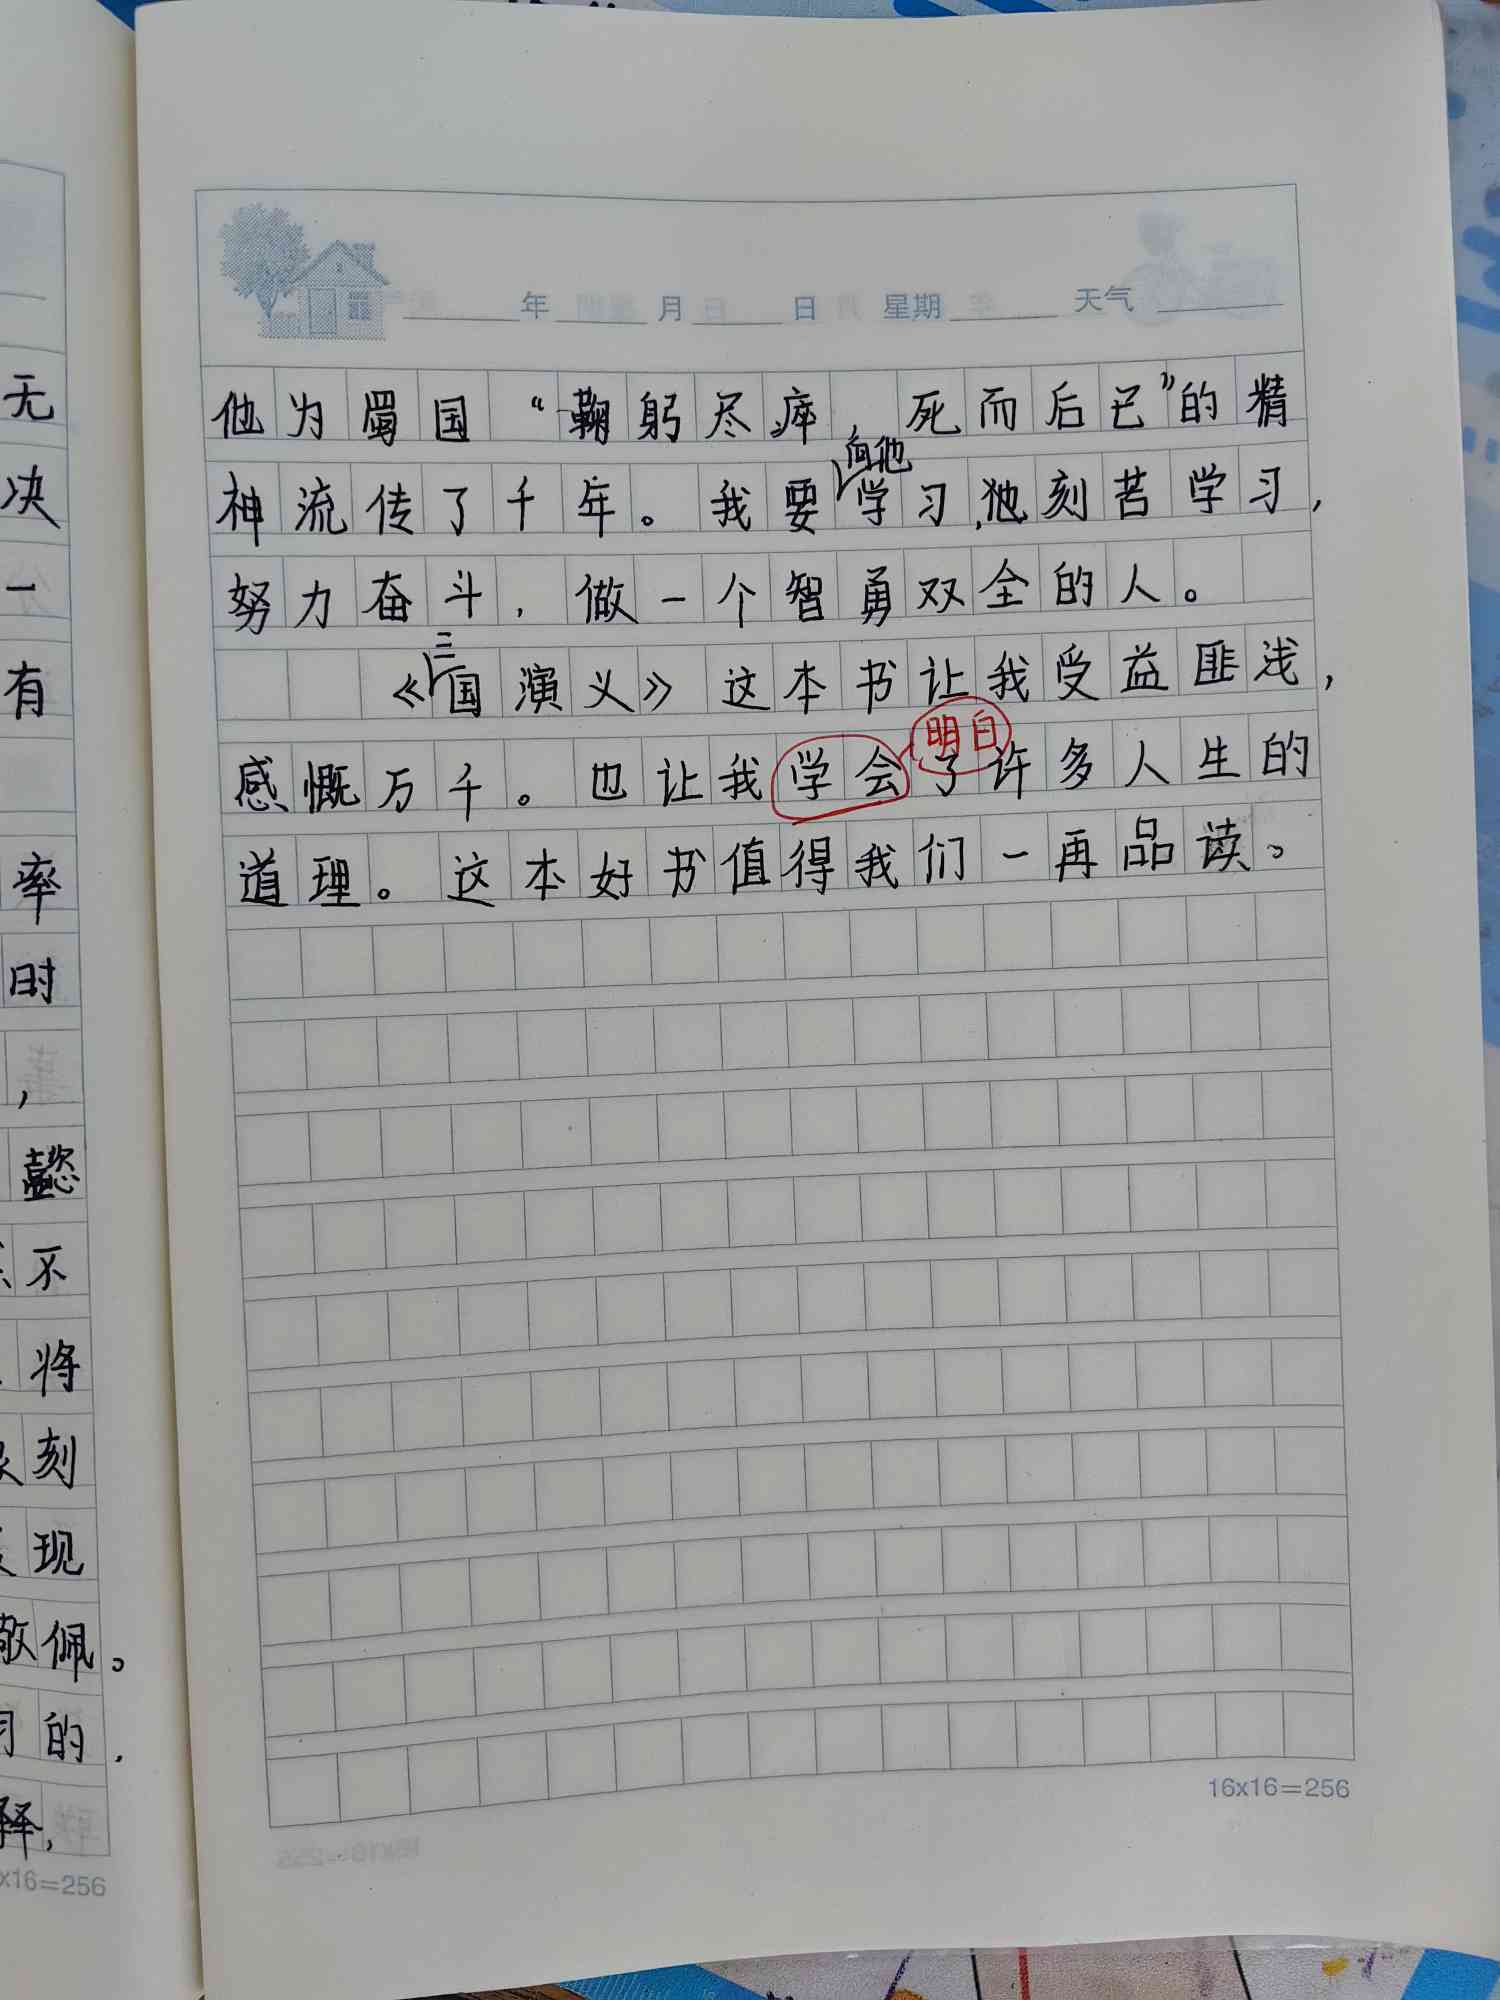 无
决
一
有
率
时
，
懿
不
将
刻
现
敬佩。
的，
释，
x16=256
年 月 日 星期 天气
他为蜀国“鞠躬尽瘁，死而后已”的精
向他
神流传了千年。我要学习，他刻苦学习，
努力奋斗，做一个智勇双全的人。
三
《国演义》这本书让我受益匪浅，
明白
感慨万千。也让我学会了许多人生的
道理。这本好书值得我们一再品读。
16x16=256